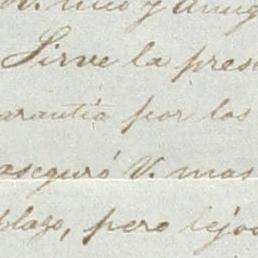 tio y Amig
Sirve la pres
arantía por los
aseguró V. mas
plazo, pero lejos